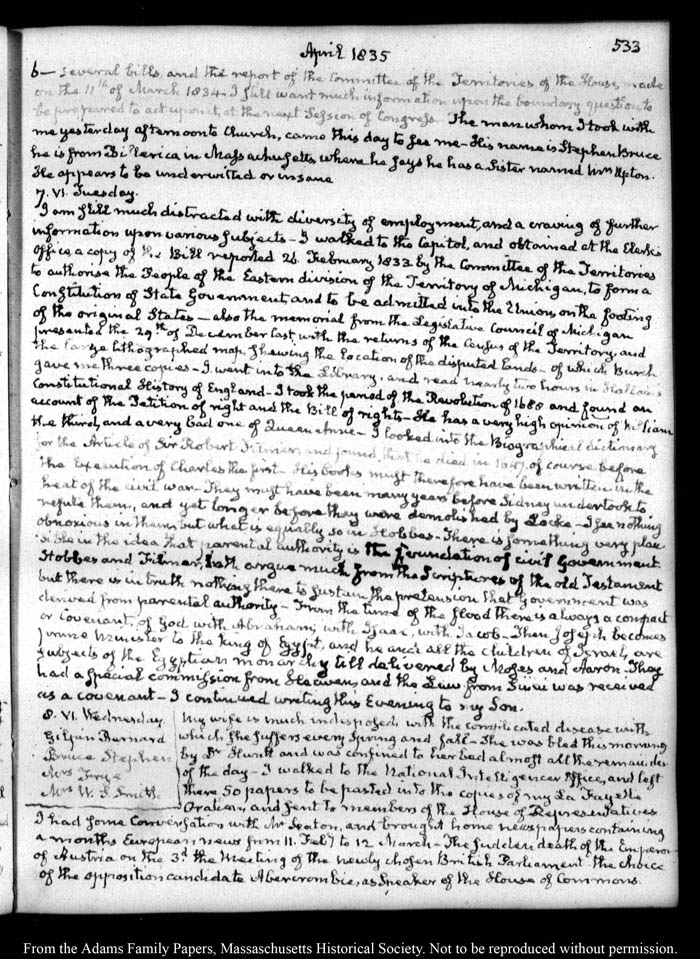 April 1835
533
6— several bills, and the report of the Committee of the Territories of the House, made
on the 11th of March 1834. I still want much information upon the boundary question, to
be prepared to act upon it, at the next Session of Congress. The man whom I took with
me yesterday afternoon to Church, came this day to see me— His name is Stephen Bruce
he is from Billerica in Massachusetts, where he says he has a Sister named Mrs Upton.
He appears to be underwitted or insane
7. VI. Tuesday.
I am still much distracted with diversity of employment, and a craving of further
information upon various subjects— I walked to the Capitol, and obtained at the Clerk's
Office, a copy of the Bill reported 26. February 1833. by the Committee of the Territories
to authorise the People of the Eastern division of the Territory of Michigan, to form a
Constitution of State Government, and to be admitted into the Union, on the footing
of the original States— also the memorial from the Legislative Council of Michigan
presented the 29th of December last, with the returns of the Census of the Territory, and
the large lithographed map, shewing the location of the disputed lands— of which Burch
gave me three copies— I went into the Library, and read nearly two hours in Hallam's
Constitutional History of England— I took the period of the Revolution of 1688 and found an
account of the Petition of right and the Bill of rights— He has a very high opinion of William
the third, and a very bad one of Queen Anne— I looked into the Biographical dictionary
for the Article of Sir Robert Filmer, and found, that he died in 1647. of course before
the Execution of Charles the first— His books must therefore have been written in the
heat of the civil war— They must have been many years before Sidney undertook to
refute them, and yet longer before they were demolished by Locke— I see nothing
obnoxious in them, but what is equally so in Hobbes— There is something very plau
sible in the idea that parental authority is the foundation of civil Government.
Hobbes and Filmer, both argue much from the Scriptures of the old Testament
but there is in truth nothing there to sustain the pretension that Government was
derived from parental authority— From the time of the flood there is always a compact
or Covenant, of God with Abraham, with Isaac, with Jacob— Then Joseph becomes
prime Minister to the King of Egypt, and he and all the children of Israel, are
subjects of the Egyptian monarchy till delivered by Moses and Aaron— They
had a special commission from Heaven, and the Law from Sinai was received
as a covenant— I continued writing this Evening to my Son.
8. VI. Wednesday
Gilpin Burnard
Bruce Stephen
Mrs Frye
Mrs W. S. Smith
My wife is much indisposed, with the complicated disease with
which she suffers every Spring and fall— She was bled this morning
by Dr Huntt and was confined to her bed almost all the remainder
of the day— I walked to the National Intelligencer Office, and left
there 50 papers to be pasted into the copies of my La Fayette
Oration, and sent to members of the House of Representatives
I had some Conversation with Mr Seaton, and brought home newspapers containing
a months European news from 11. Feby to 12 March— The sudden death of the Emperor
of Austria on the 3d the Meeting of the newly chosen British Parliament the choice
of the opposition candidate Abercrombie, as Speaker of the House of Commons.
From the Adams Family Papers, Massachusetts Historical Society. Not to be reproduced without permission.